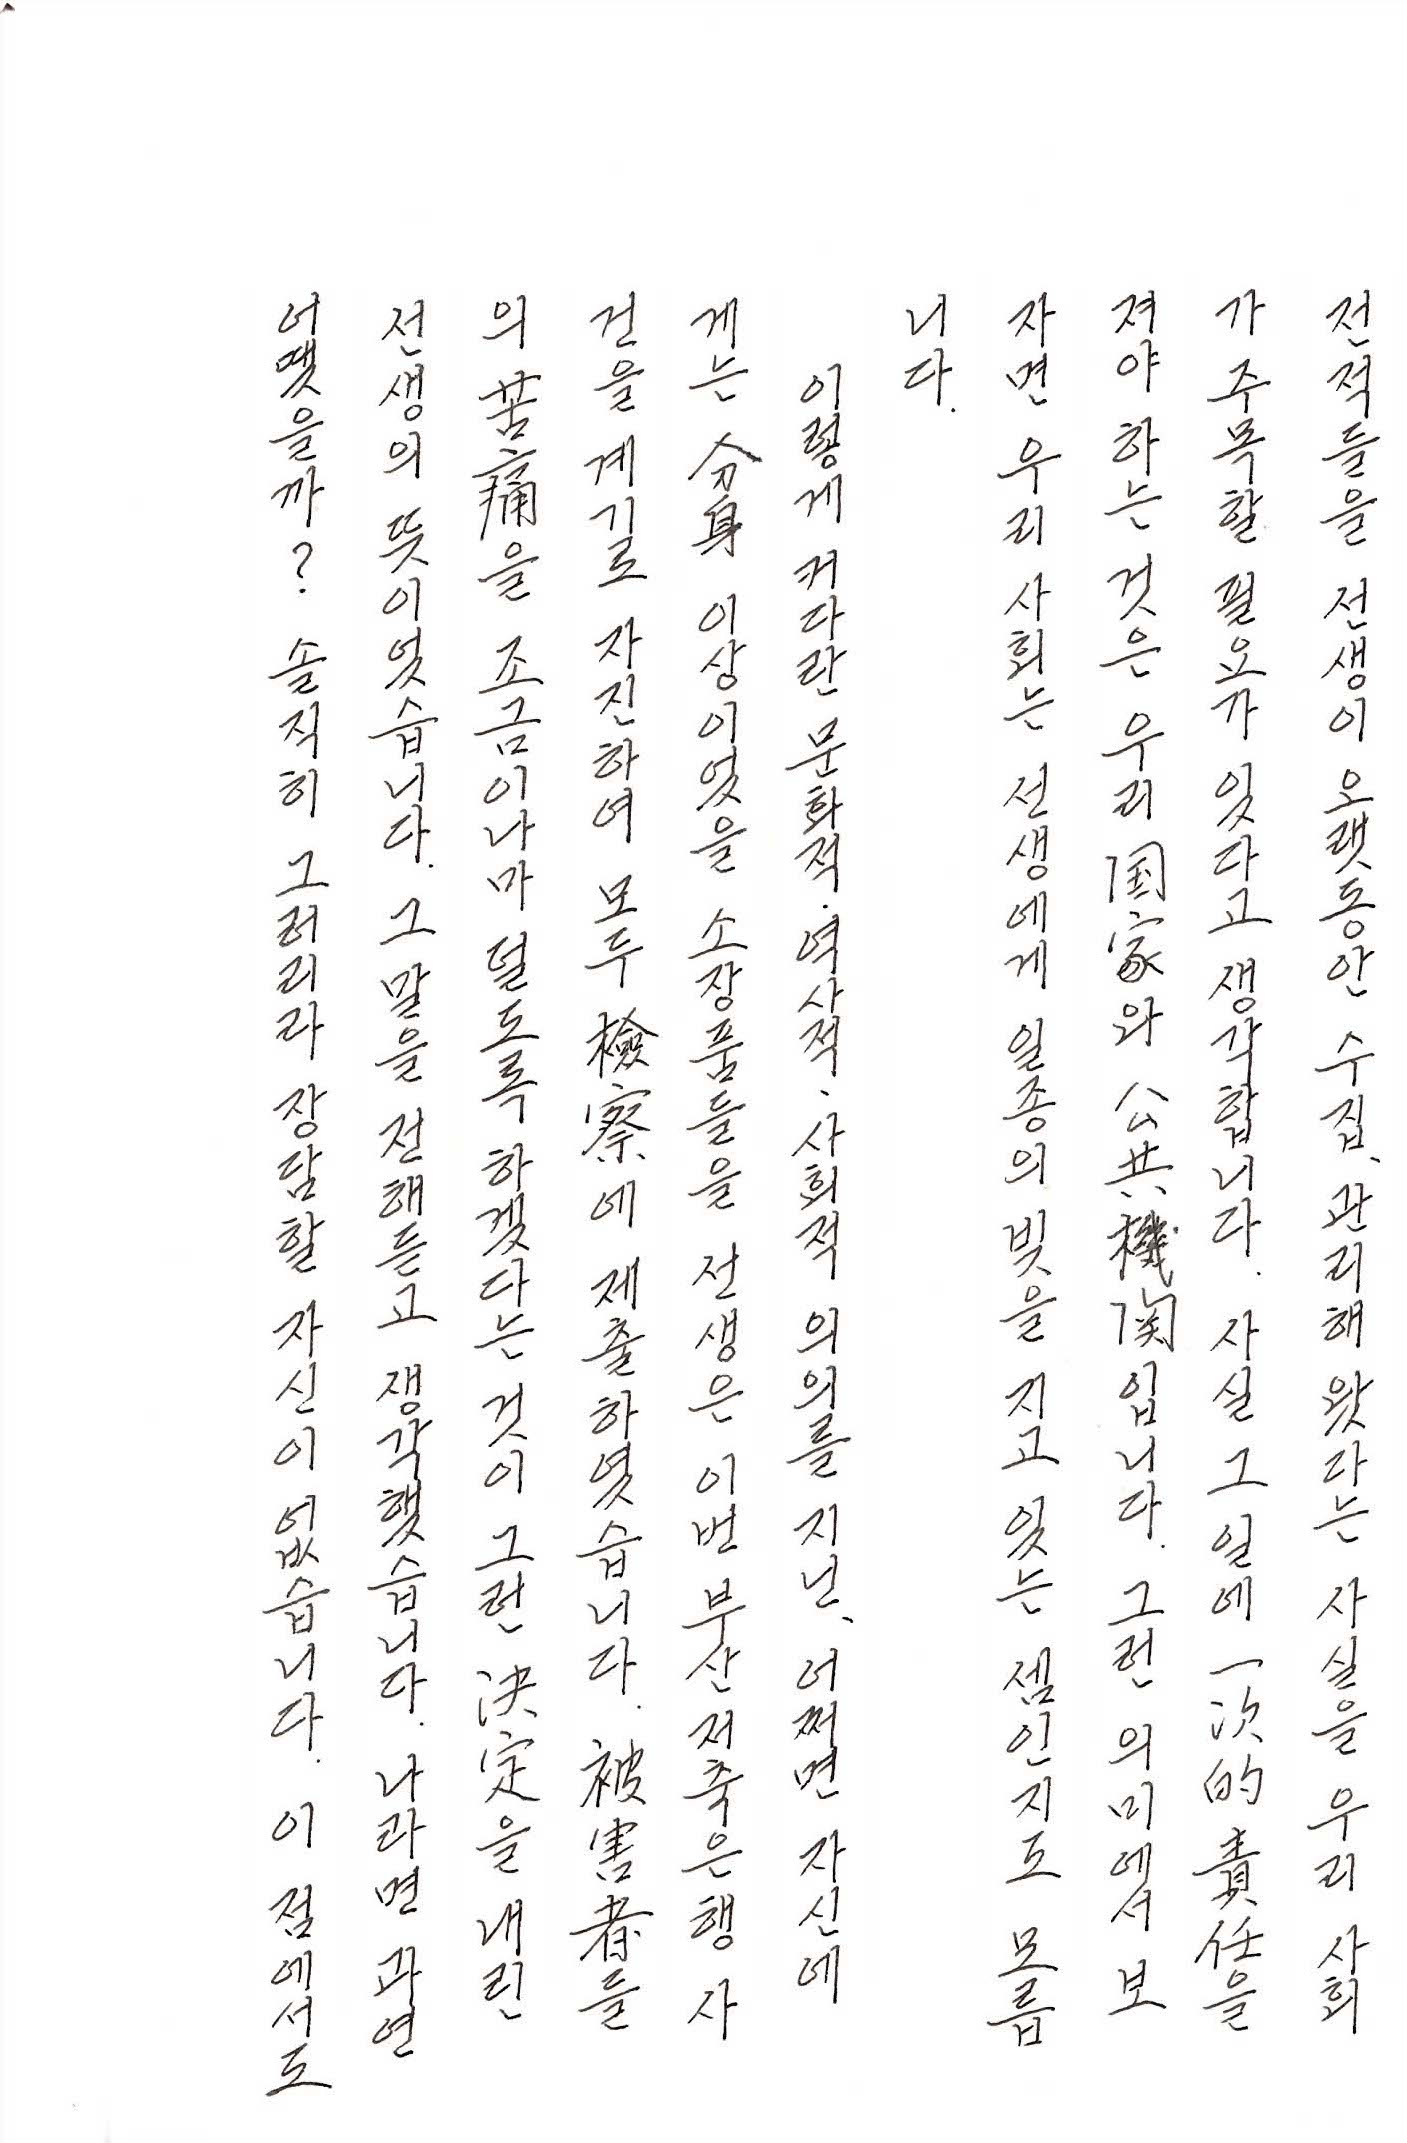 전적들을 전생이 오랫동안 수집、관리해 왔다는 사실을 우리 사회
가 주목할 필요가 있다고 생각합니다. 사실 그 일에 一次的 責任을
져야 하는 것은 우리 国家와 公共機関입니다. 그런 의미에서 보
자면 우리 사회는 선생에게 일종의 빚을 지고 있는 셈인지도 모릅
니다.
이렇게 커다란 문화적·역사적、사회적 의의를 지닌、어쩌면 자신에
게는 分身 이상이었을 소장품들을 전생은 이번 부산저축은행 사
건을 계기로 자진하여 모두 檢察에 제출하였습니다. 被害者들
의 苦痛을 조금이나마 덜도록 하겠다는 것이 그런 決定을 내린
선생의 뜻이었습니다. 그 말을 전해듣고 생각했습니다. 나라면 과연
어땠을까? 솔직히 그러리라 장담할 자신이 없습니다. 이 점에서도